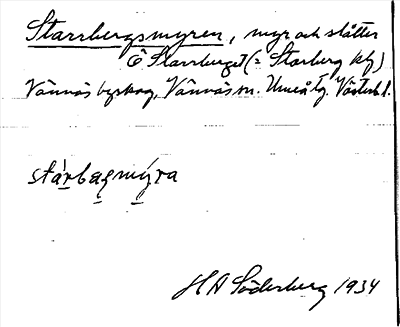 Starrbergsmyren, myr och slåtter
Ö Starrberget (= Starberg kfg)
Vännäs byskog, Vännäs sn. Umeå tg. Västerb l.
stárbagmýra
H A Söderberg 1934